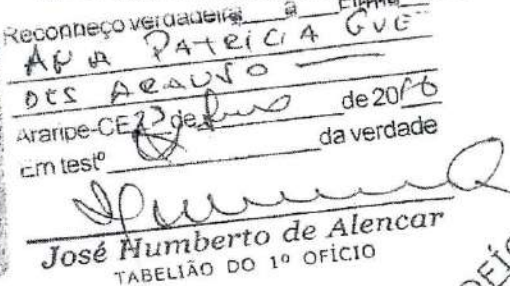 Reconheço verdadeira a Firma
ANA PATRICIA GUE
DES ARAUJO
Araripe-CE 23 de de 2016
Em testº da verdade
José Humberto de Alencar
TABELIÃO DO 1º OFÍCIO